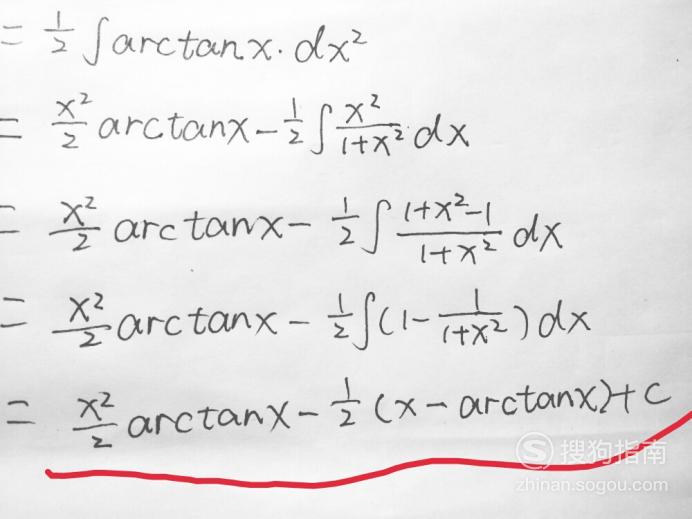 = 1/2 ∫ arctanx · dx²
= x²/2 arctanx - 1/2 ∫ x²/(1+x²) dx
= x²/2 arctanx - 1/2 ∫ (1+x²-1)/(1+x²) dx
= x²/2 arctanx - 1/2 ∫ (1 - 1/(1+x²)) dx
= x²/2 arctanx - 1/2 (x - arctanx) + c
S 搜狗指南
zhinan.sogou.com